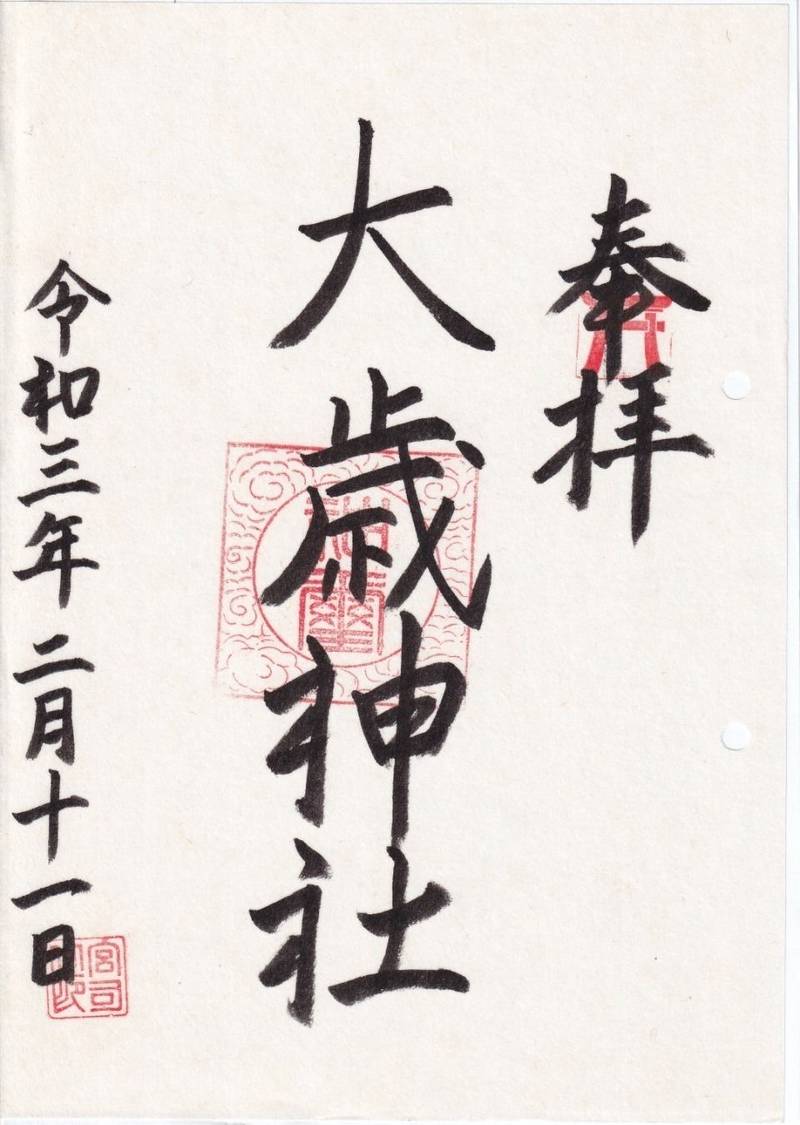 奉拝
大歳神社
令和三年二月十一日
宮司